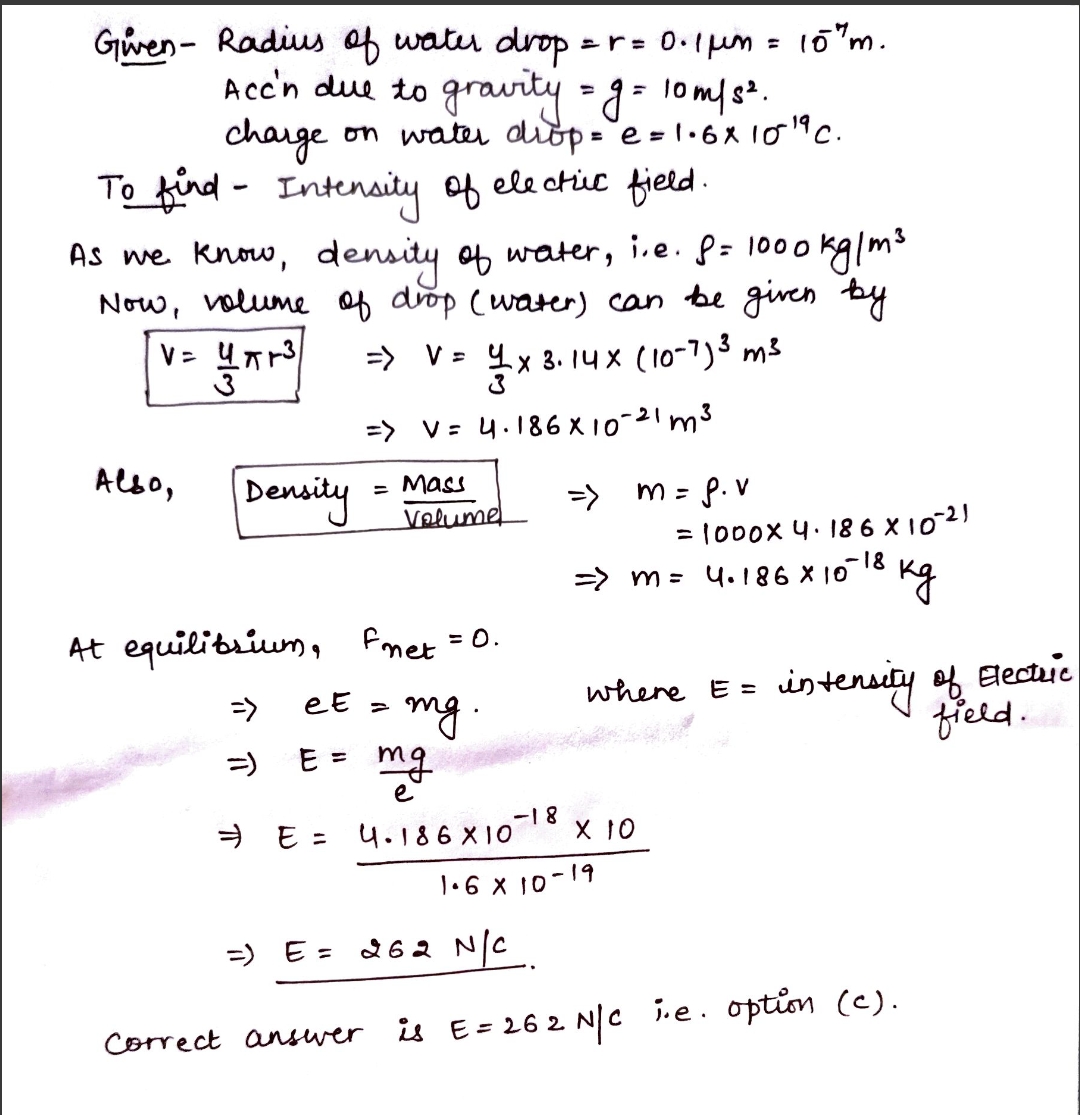 Given- Radius of water drop = r = 0.1 μm = 10⁻⁷m.
Acc'n due to gravity = g = 10 m/s².
charge on water drop = e = 1.6 x 10⁻¹⁹ C.
To find - Intensity of electric field.
As we know, density of water, i.e. ρ = 1000 kg/m³
Now, volume of drop (water) can be given by
V = 4/3 πr³ => V = 4/3 x 3.14 x (10⁻⁷)³ m³
=> V = 4.186 x 10⁻²¹ m³
Also, Density = Mass/Volume => m = ρ.V
= 1000 x 4.186 x 10⁻²¹
=> m = 4.186 x 10⁻¹⁸ kg
At equilibrium, Fnet = 0.
=> eE = mg. where E = intensity of Electric field.
=> E = mg/e
=> E = 4.186 x 10⁻¹⁸ x 10 / 1.6 x 10⁻¹⁹
=> E = 262 N/C.
Correct answer is E = 262 N/C i.e. option (c).